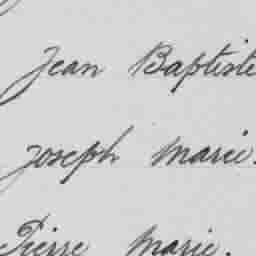 Jean Baptiste
Joseph Marie.
Pierre Marie.